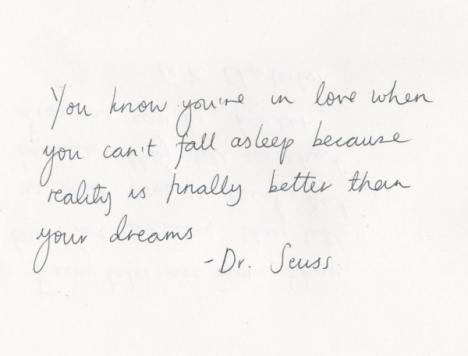 You know you're in love when
you can't fall asleep because
reality is finally better than
your dreams
-Dr. Seuss.